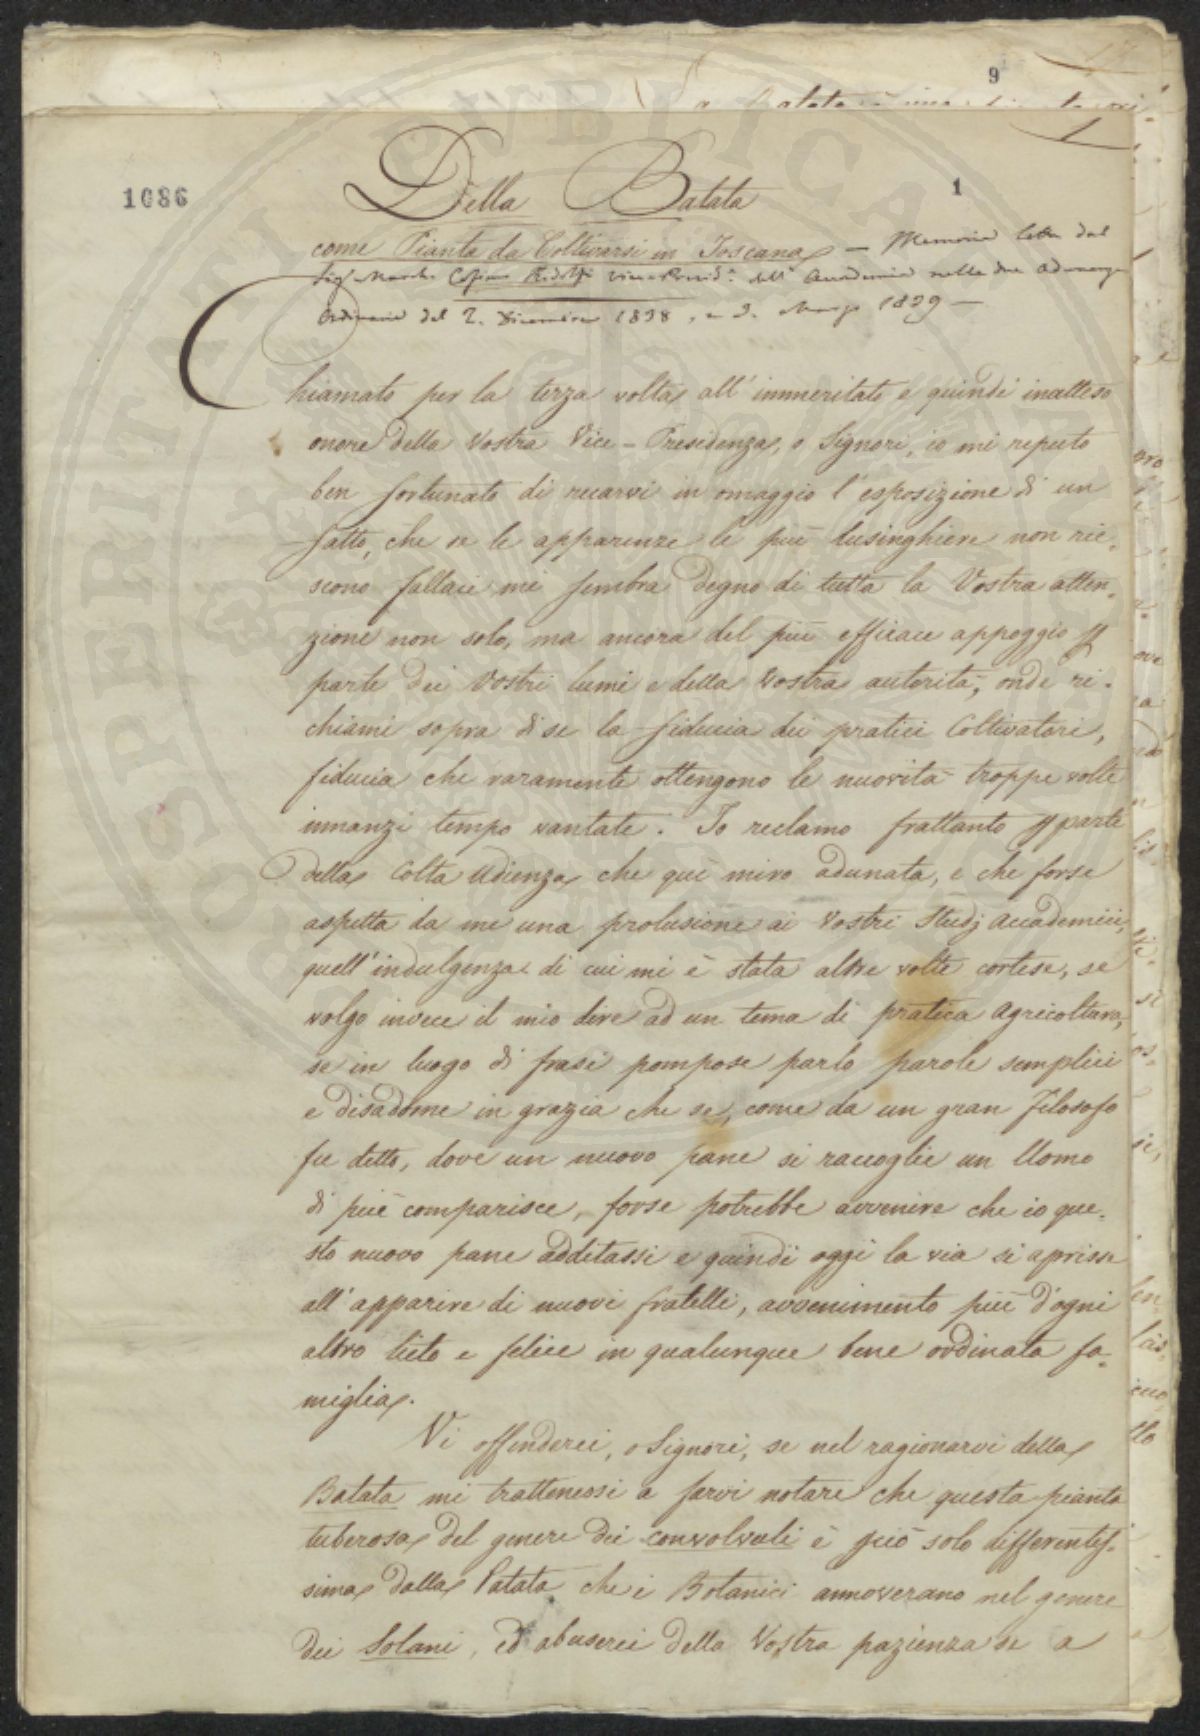 9
1086
1
1
Della Batata
come Pianta da Coltivarsi in Toscana — Memoria letta dal
Sig. March. Cosimo Ridolfi Vice Presid.e dell' Accademia nelle due adunanze
Ordinarie del 2. Dicembre 1838, e 3. Marzo 1839 —
Chiamato per la terza volta all' immeritato e quindi inatteso
onore della Vostra Vice-Presidenza, o Signori, io mi reputo
ben fortunato di recarvi in omaggio l'esposizione di un
fatto, che se le apparenze le più lusinghiere non rie-
scono fallaci mi sembra degno di tutta la Vostra atten-
zione non solo, ma ancora del più efficace appoggio p
parte dei Vostri lumi e della Vostra autorità, onde ri-
chiami sopra di se la fiducia dei pratici Coltivatori,
fiducia che raramente ottengono le nuovità troppe volte
innanzi tempo vantate. Io reclamo frattanto p parte
della Colta Udienza che quì miro adunata, e che forse
aspetta da me una prolusione ai Vostri Studj Accademici,
quell'indulgenza di cui mi è stata altre volte cortese, se
volgo invece il mio dire ad un tema di pratica Agricoltura,
se in luogo di frasi pompose parlo parole semplici
e disadorne in grazia che se, come da un gran Filosofo
fu detto, dove un nuovo pane si raccoglie un Uomo
di più comparisce, forse potrebbe avvenire che io que-
sto nuovo pane additassi e quindi oggi la via si aprisse
all' apparire di nuovi fratelli, avvenimento più d'ogni
altro lieto e felice in qualunque bene ordinata fa-
miglia.
Vi offenderei, o Signori, se nel ragionarvi della
Batata mi trattenessi a farvi notare che questa pianta
tuberosa del genere dei convolvuli è non solo differentis-
sima dalla Patata che i Botanici annoverano nel genere
dei Solani, ed abuserei della Vostra pazienza se a